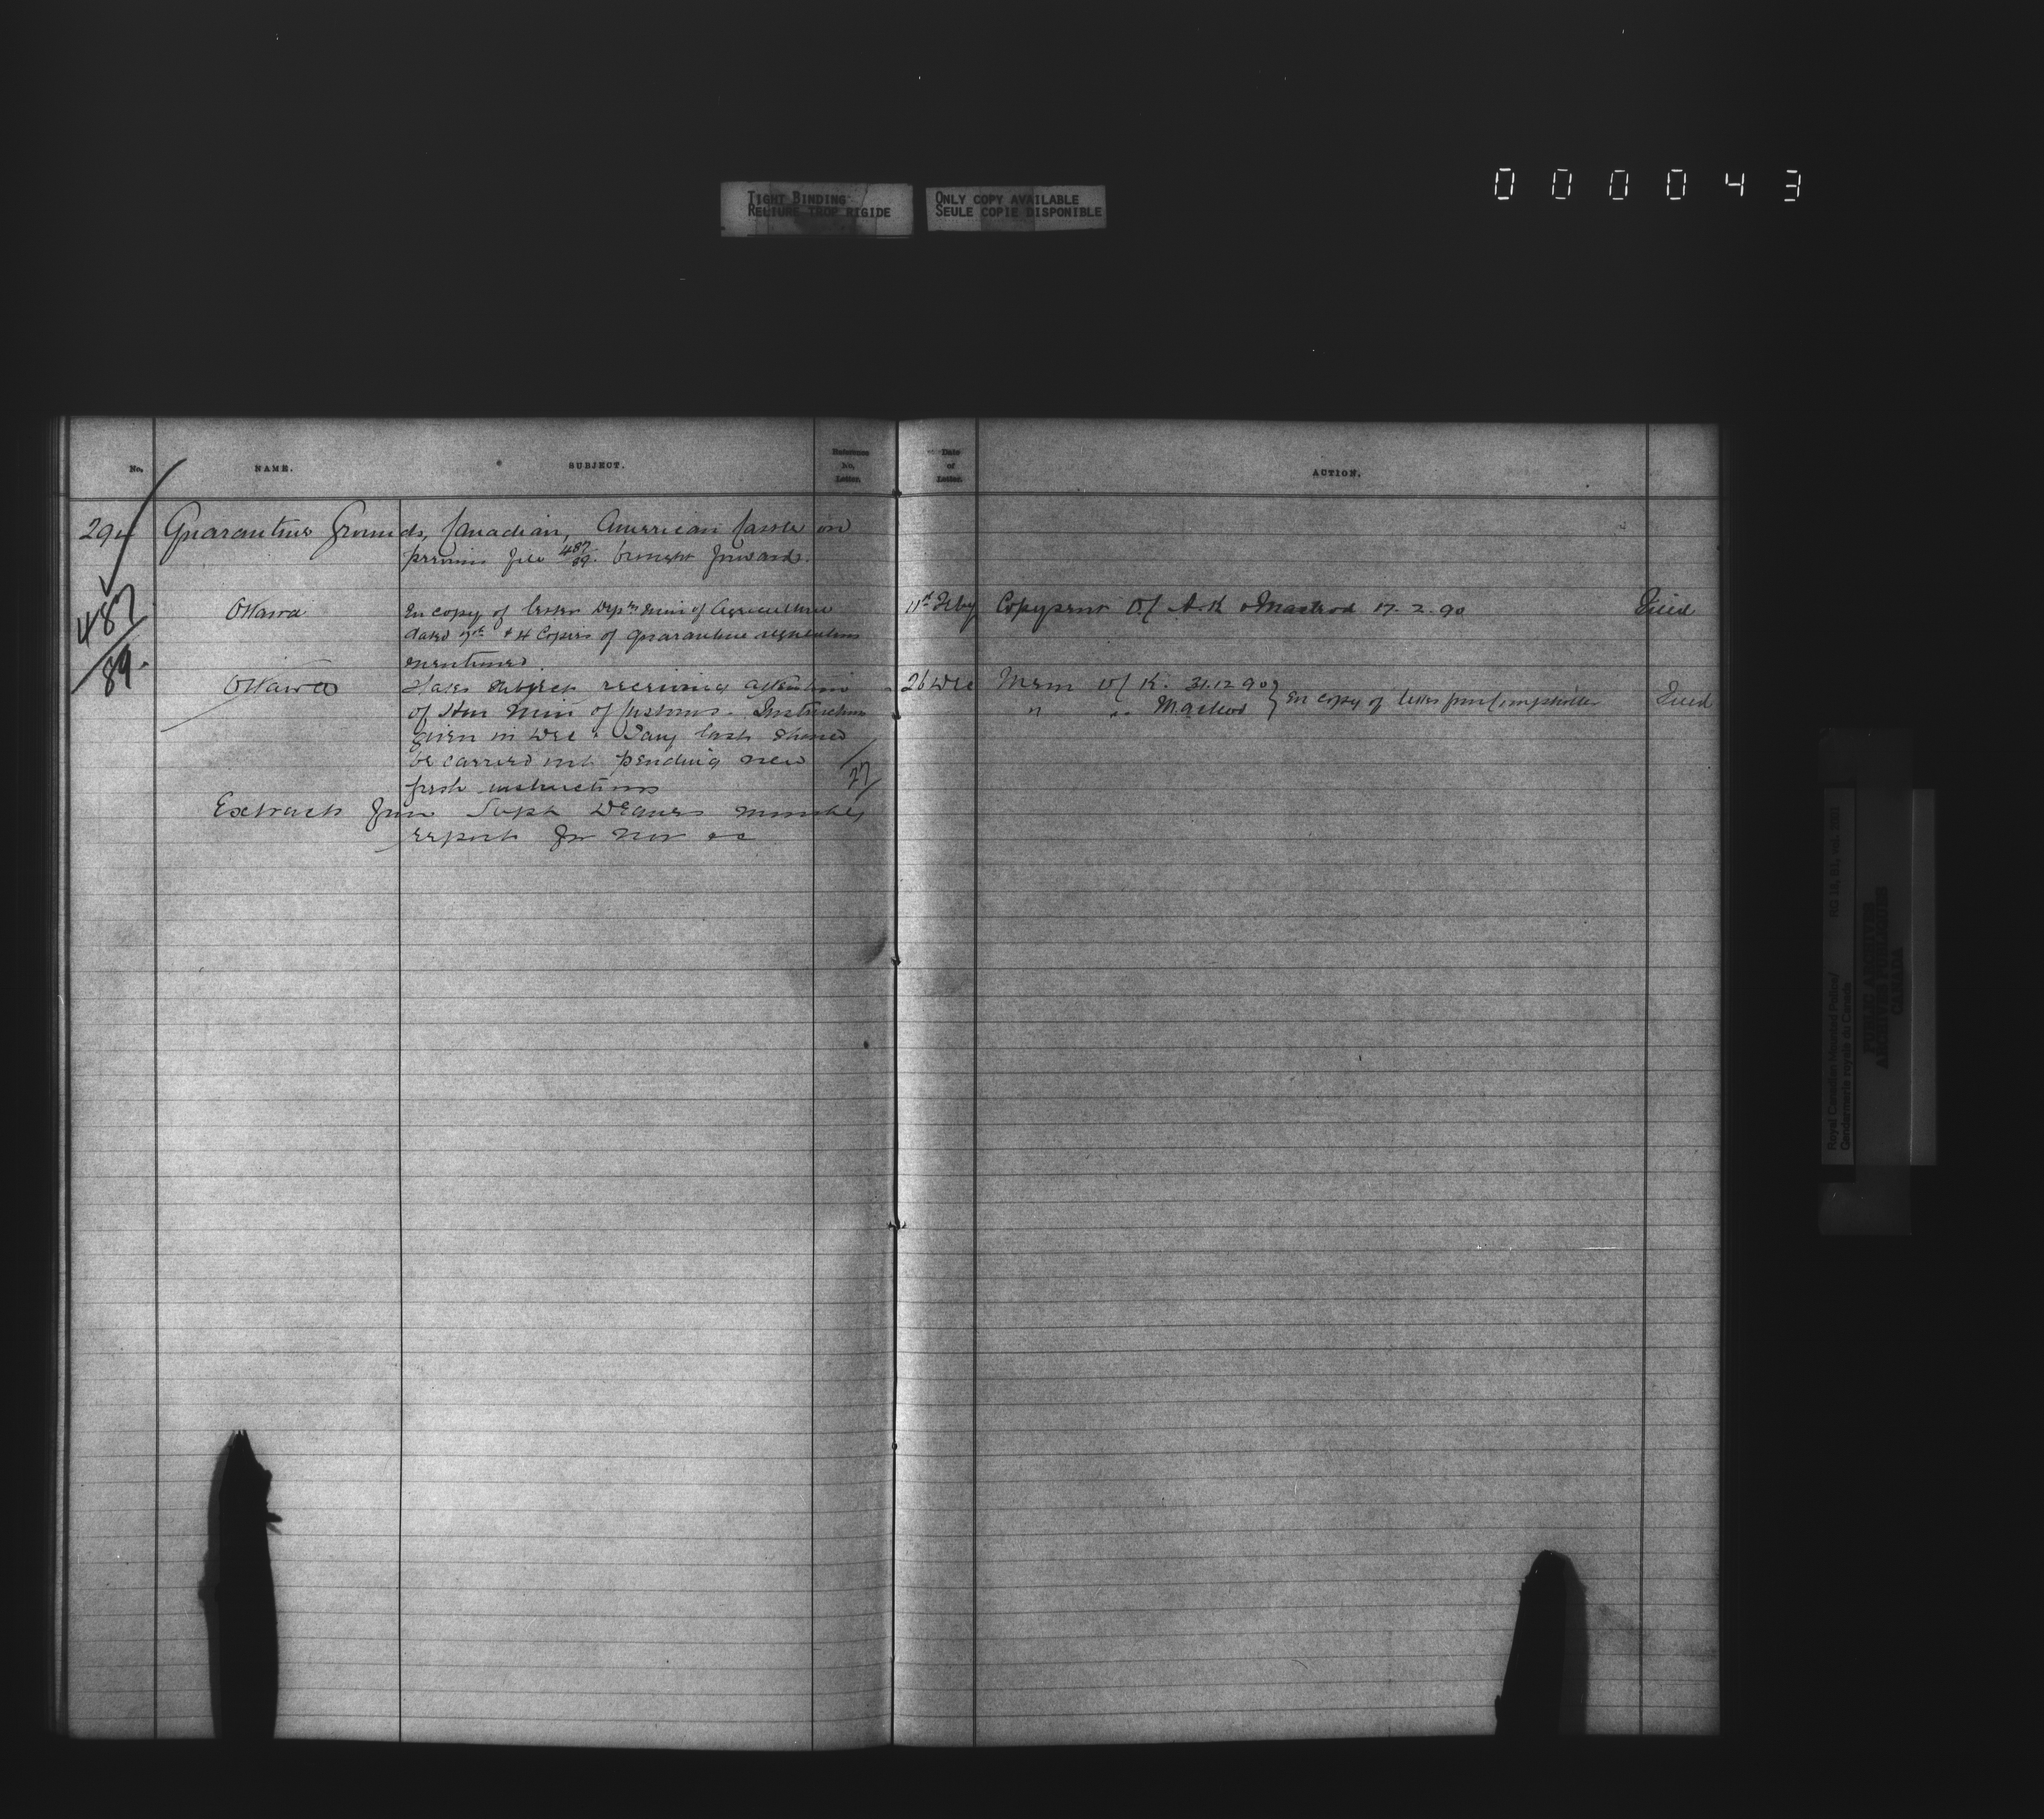 TIGHT BINDING
RELIURE TROP RIGIDE
ONLY COPY AVAILABLE
SEULE COPIE DISPONIBLE
000043
No.
NAME.
SUBJECT.
Reference
No.
Letter.
Date
of
Letter.
ACTION.
294 Quarantine Grounds, Canadian, American Cattle on
previous file 487/89. brought forward.
487/89.
Ottawa
En copy of letter Dep. Min of Agriculture
dated 7th & 4 Copies of quarantine regulations
mentioned.
11th Feby Copy sent O/C A. K & Macleod 17.2.90 Filed
Ottawa
States subject receiving attention
of Hon Min of Customs. Instructions
given in Dec & Jany last should
be carried out pending new
fresh instructions
27
26 Dec Mem O/C K. 31.12.90
" " Macleod } En copy of letter from Comptroller Filed
Extract from Supt Deanes monthly
report for Nov 90
Royal Canadian Mounted Police/
Gendarmerie royale du Canada
RG 18, B1, vol.
PUBLIC ARCHIVES
ARCHIVES PUBLIQUES
CANADA